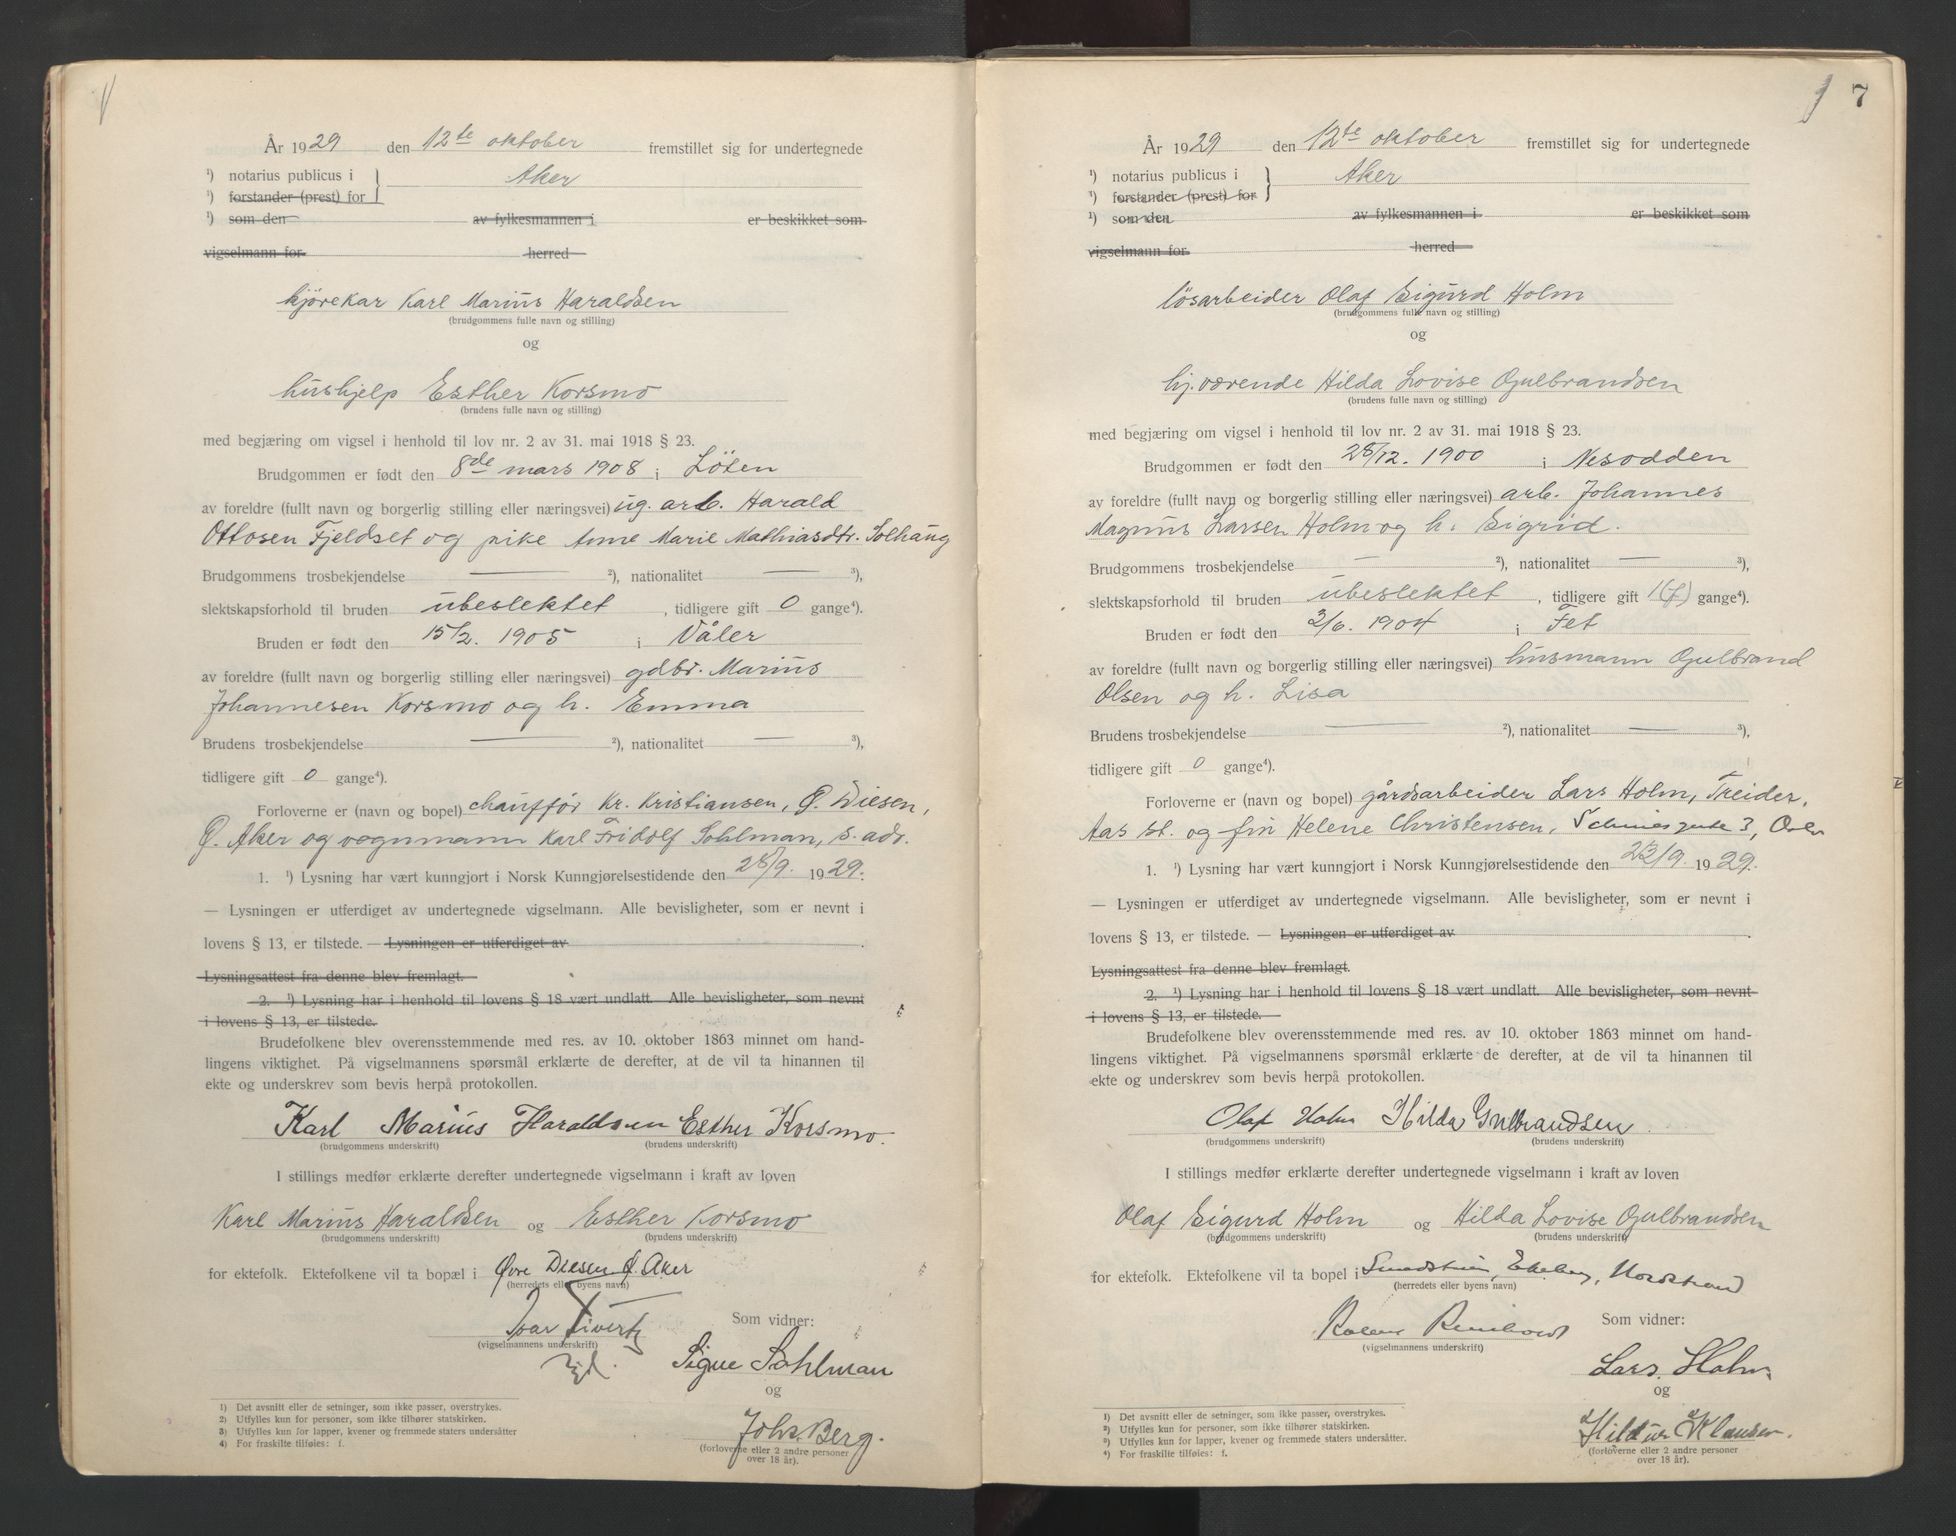 År 1929 den 12te oktober fremstillet sig for undertegnede
¹) notarius publicus i } Aker
¹) forstander (prest) for
¹) som den av fylkesmannen i er beskikket som
vigselmann for herred
kjørekar Karl Marius Haraldsen
(brudgommens fulle navn og stilling)
og
hushjelp Esther Korsmo
(brudens fulle navn og stilling)
med begjæring om vigsel i henhold til lov nr. 2 av 31. mai 1918 § 23.
Brudgommen er født den 8de mars 1908 i Löten
av foreldre (fullt navn og borgerlig stilling eller næringsvei) ug. arb. Harald
Ottosen Fjeldset og pike Anne Marie Mathiasdtr. Solhaug
Brudgommens trosbekjendelse — ²), nationalitet — ³),
slektskapsforhold til bruden ubeslektet, tidligere gift 0 gange⁴).
Bruden er født den 15/2. 1905 i Våler
av foreldre (fullt navn og borgerlig stilling eller næringsvei) gdbr. Marius
Johannesen Korsmo og h. Emma
Brudens trosbekjendelse — ²), nationalitet — ³),
tidligere gift 0 gange⁴).
Forloverne er (navn og bopel) chauffør Kr. Kristiansen, Ø. Diesen,
Ø. Aker og vognmann Karl Fridolf Sohlman, s. adr.
1. ¹) Lysning har vært kunngjort i Norsk Kunngjørelsestidende den 28/9. 1929.
— Lysningen er utferdiget av undertegnede vigselmann. Alle bevisligheter, som er nevnt i
lovens § 13, er tilstede. — Lysningen er utferdiget av
Lysningsattest fra denne blev fremlagt.
2. ¹) Lysning har i henhold til lovens § 18 vært undlatt. Alle bevisligheter, som nevnt
i lovens § 13, er tilstede.
Brudefolkene blev overensstemmende med res. av 10. oktober 1863 minnet om hand-
lingens viktighet. På vigselmannens spørsmål erklærte de derefter, at de vil ta hinannen til
ekte og underskrev som bevis herpå protokollen.
Karl Marius Haraldsen Esther Korsmo.
(brudgommens underskrift) (brudens underskrift)
I stillings medfør erklærte derefter undertegnede vigselmann i kraft av loven
Karl Marius Haraldsen og Esther Korsmo
(brudgommens underskrift) (brudens underskrift)
for ektefolk. Ektefolkene vil ta bopæl i Øvre Diesen Ø. Aker
(herredets eller byens navn)
Ivar Sivertz Som vidner:
(vigselmannens underskrift)
Signe Sohlman
og
Johs. Berg.
(forloverne eller 2 andre personer
over 18 år).
1) Det avsnitt eller de setninger, som ikke passer, overstrykes.
2) Utfylles kun for personer, som ikke tilhører statskirken.
3) Utfylles kun for lapper, kvener og fremmede staters undersåtter
4) For fraskilte tilføies: f.
7
År 1929 den 12te oktober fremstillet sig for undertegnede
¹) notarius publicus i } Aker
¹) forstander (prest) for
¹) som den av fylkesmannen i er beskikket som
vigselmann for herred
løsarbeider Olaf Sigurd Holm
(brudgommens fulle navn og stilling)
og
hj.værende Hilda Lovise Gulbrandsen
(brudens fulle navn og stilling)
med begjæring om vigsel i henhold til lov nr. 2 av 31. mai 1918 § 23.
Brudgommen er født den 28/12. 1900 i Nesodden
av foreldre (fullt navn og borgerlig stilling eller næringsvei) arb. Johannes
Magnus Larsen Holm og h. Sigrid.
Brudgommens trosbekjendelse — ²), nationalitet — ³),
slektskapsforhold til bruden ubeslektet, tidligere gift 1(f) gange⁴).
Bruden er født den 2/6. 1904 i Fet
av foreldre (fullt navn og borgerlig stilling eller næringsvei) husmann Gulbrand
Olsen og h. Lisa
Brudens trosbekjendelse — ²), nationalitet — ³),
tidligere gift 0 gange⁴).
Forloverne er (navn og bopel) gårdsarbeider Lars Holm, Treider,
Aas st. og frk Helene Christensen, gate 3, Oslo
1. ¹) Lysning har vært kunngjort i Norsk Kunngjørelsestidende den /9. 1929.
— Lysningen er utferdiget av undertegnede vigselmann. Alle bevisligheter, som er nevnt i
lovens § 13, er tilstede. — Lysningen er utferdiget av
Lysningsattest fra denne blev fremlagt.
2. ¹) Lysning har i henhold til lovens § 18 vært undlatt. Alle bevisligheter, som nevnt
i lovens § 13, er tilstede.
Brudefolkene blev overensstemmende med res. av 10. oktober 1863 minnet om hand-
lingens viktighet. På vigselmannens spørsmål erklærte de derefter, at de vil ta hinannen til
ekte og underskrev som bevis herpå protokollen.
Olaf Holm Hilda Gulbrandsen
(brudgommens underskrift) (brudens underskrift)
I stillings medfør erklærte derefter undertegnede vigselmann i kraft av loven
Olaf Sigurd Holm og Hilda Lovise Gulbrandsen
(brudgommens underskrift) (brudens underskrift)
for ektefolk. Ektefolkene vil ta bopel i Ekeberg, Nordstrand
(herredets eller byens navn)
Som vidner:
(vigselmannens underskrift)
Lars. Holm
og
Hildur Klausen.
(forloverne eller 2 andre personer
over 18 år).
1) Det avsnitt eller de setninger, som ikke passer, overstrykes.
2) Utfylles kun for personer, som ikke tilhører statskirken.
3) Utfylles kun for lapper, kvener og fremmede staters undersåtter.
4) For fraskilte tilføies: f.